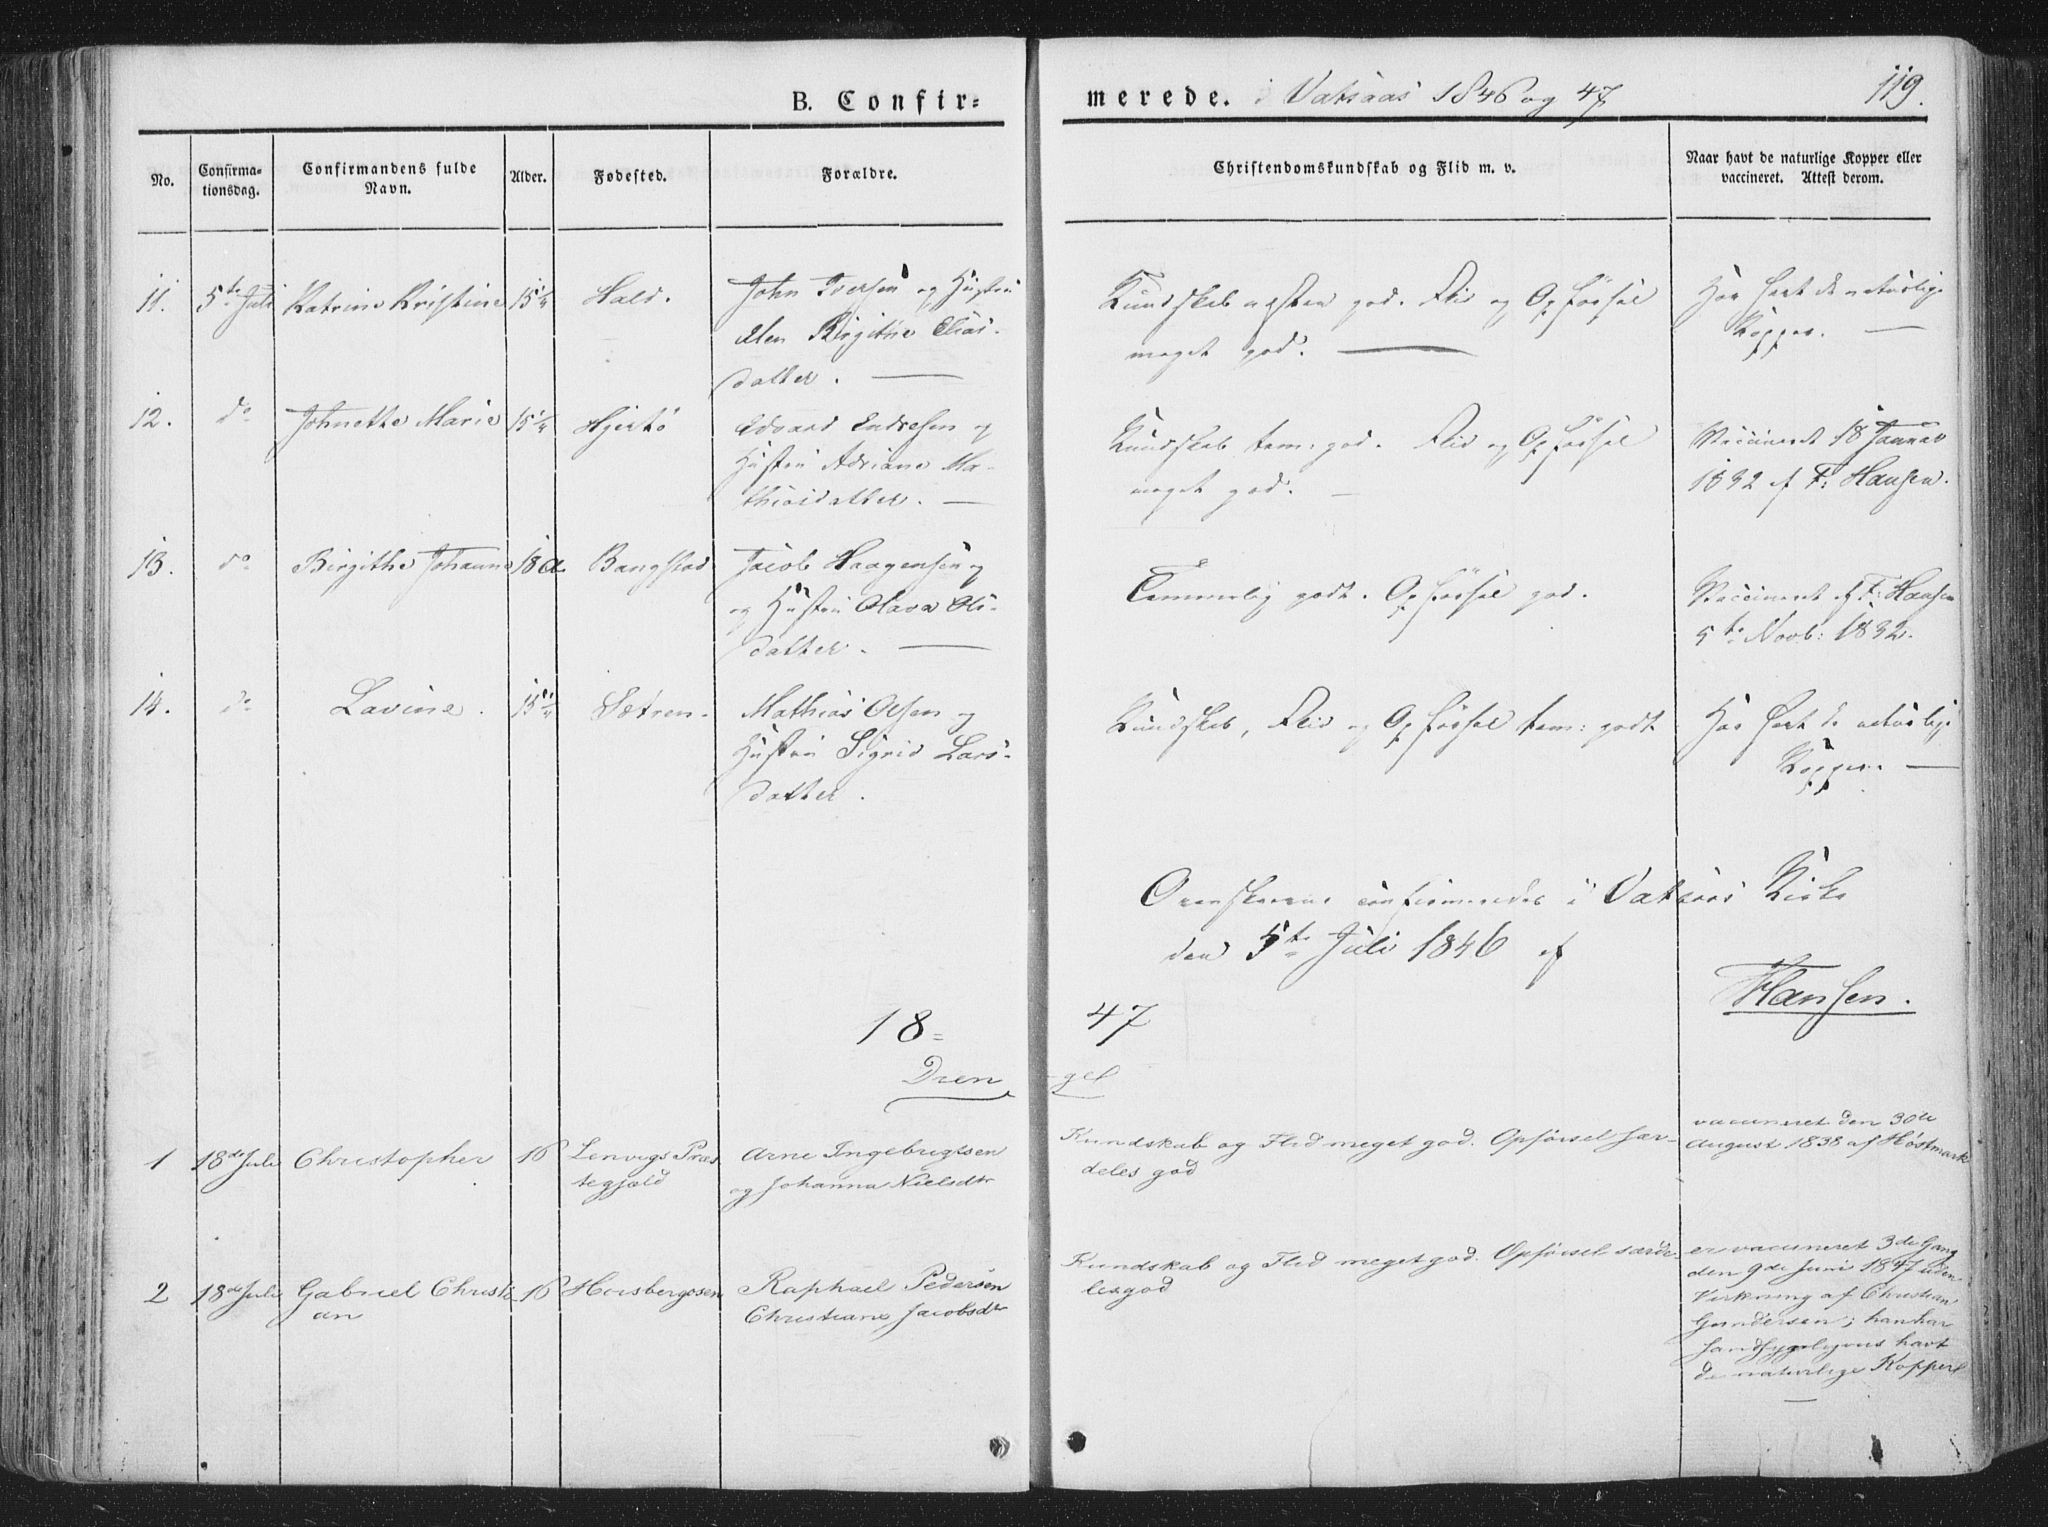 B. Confir=
merede. i Vatsaas 1846 og 47
119.
No.
Confirma-
tionsdag.
Confirmandens fulde
Navn.
Alder.
Fødested.
Forældre.
Christendomskundskab og Flid m. v.
Naar havt de naturlige Kopper eller
vaccineret. Attest derom.
11.
5te Juli
Katrine Kristine
15 1/4
Hald.
John Iversen og Hustru
Elen Birgithe Elias-
datter.
Kundskab næsten god. Flid og Opførsel
meget god.
Har havt de naturlige
Kopper.
12.
do
Johnette Marie
15 1/4
Hjertø
Edvard Endresen og
Hustru Adriane Ma-
thiasdatter.
Kundskab tem: god. Flid og Opførsel
meget god.
Vaccineret 18 Januar
1832 af F: Hansen.
13.
do
Birgithe Johanne
18 a
Bangstad
Jacob Haagensen og
og Hustru Olava Ols-
datter.
Temmelig godt. Opførsel god.
Vaccineret af F: Hansen
5te Novb: 1832.
14.
do
Lavine.
15 1/4
Sætren.
Mathias Olsen og
Hustru Sigrid Lars-
datter.
Kundskab, Flid og Opførsel tem: godt
Har havt de naturlige
Kopper.
Ovenskrevne confirmeredes i Vatsaas Kirke
den 5te Juli 1846 af
Hansen.
18=
47
Dren
gel
1
18de Juli
Christopher
16
Lenvigs Præs
tegjæld
Arne Ingebrigtsen
og Johanna Nielsdtr
Kundskab og Flid meget god. Opførsel sær-
deles god
vaccineret den 30te
August 1838 af Høstmark
2
18de Juli
Gabriel Christi
an
16
Horsbergosen
Raphael Pedersen
Christiane Jacobsdtr
Kundskab og Flid meget god. Opførsel særde-
les god
er vaccineret 3de Gang
den 9de Juni 1847 uden
Virkning af Christian
Gundersen; han har
sandsynligvis havt
de naturlige Kopper